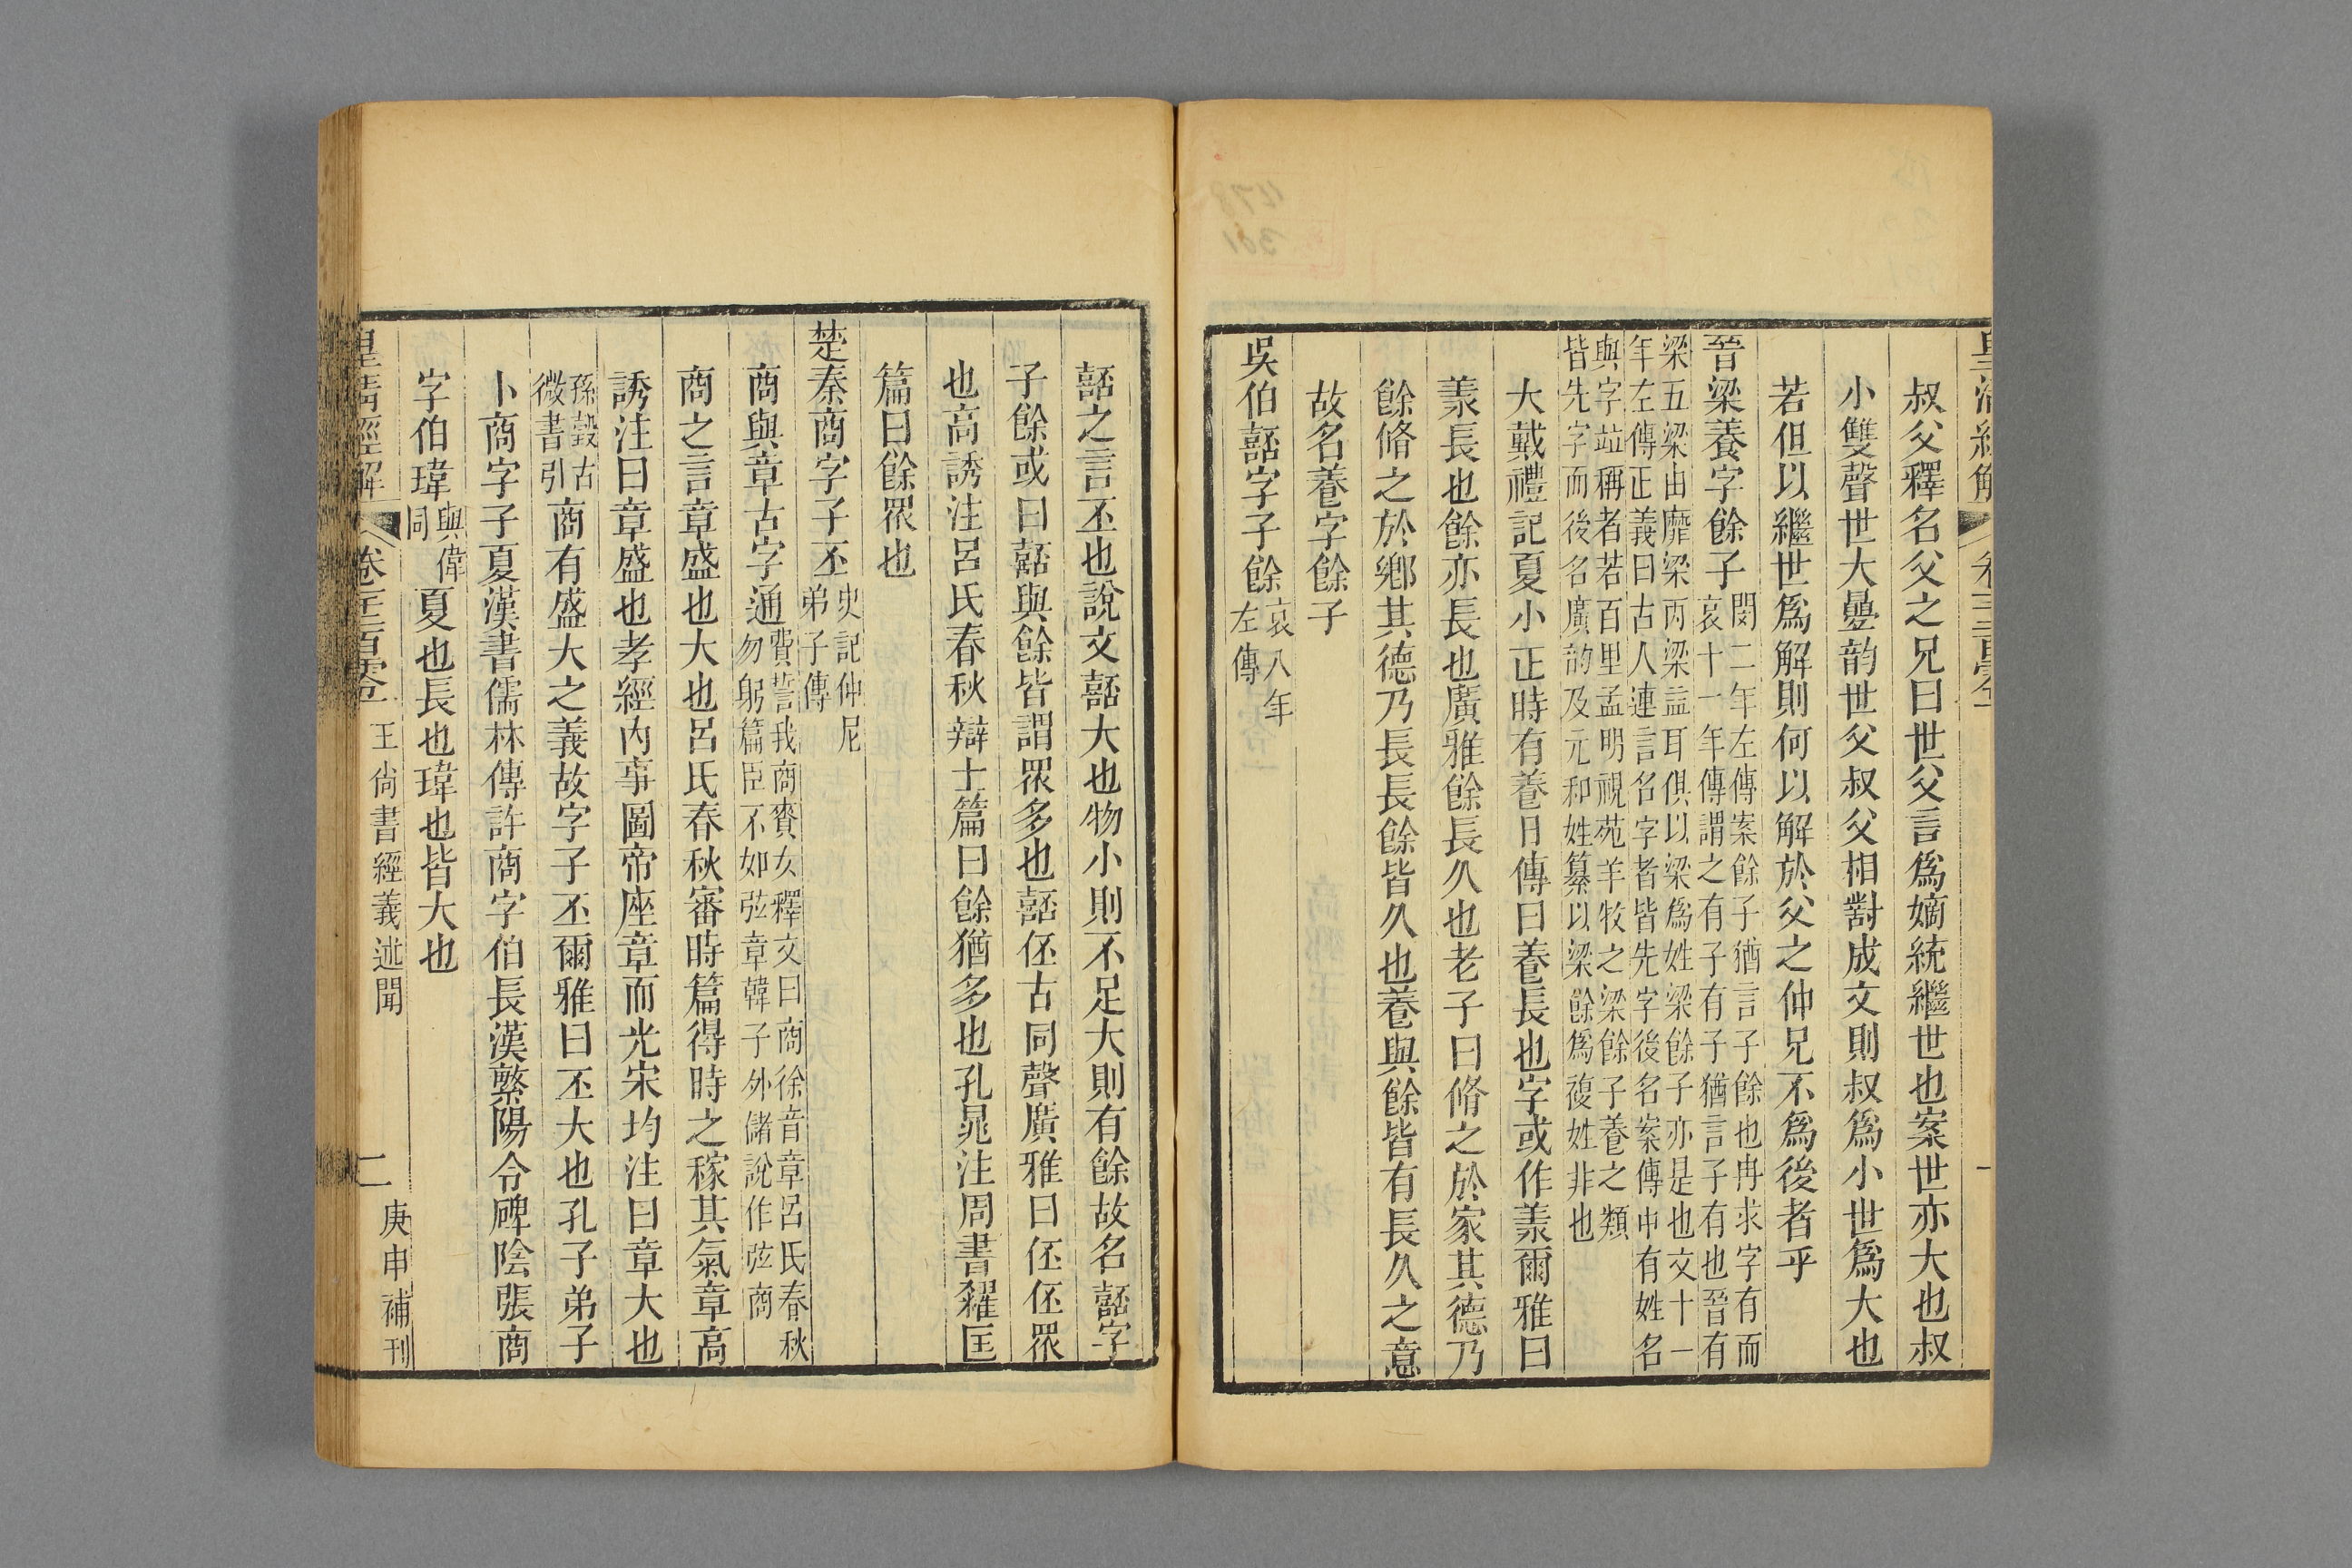 叔父釋名父之兄曰世父言爲嫡統繼世也案世亦大也叔
小雙聲世大曡韵世父叔父相對成文則叔爲小世爲大也
若但以繼世爲解則何以解於父之仲兄不爲後者乎
晉梁養字餘子
閔二年左傳案餘子猶言子餘也冉求字有而
哀十一年傳謂之有子有子猶言子有也晉有
梁五梁由靡梁丙梁益耳俱以梁爲姓梁餘子亦是也文十一
年左傳正義曰古人連言名字者皆先字後名案傳中有姓名
與字竝稱者若百里孟明視苑羊牧之梁餘子養之類
皆先字而後名廣韵及元和姓纂以梁餘爲複姓非也
大戴禮記夏小正時有養日傳曰養長也字或作羕爾雅曰
羕長也餘亦長也廣雅餘長久也老子曰脩之於家其德乃
餘脩之於鄉其德乃長長餘皆久也養與餘皆有長久之意
故名養字餘子
吳伯嚭字子餘
哀八年
左傳
嚭之言丕也說文嚭大也物小則不足大則有餘故名嚭字
子餘或曰嚭與餘皆謂眾多也嚭伾古同聲廣雅曰伾伾眾
也高誘注呂氏春秋辯士篇曰餘猶多也孔晁注周書糴匡
篇曰餘眾也
楚秦商字子丕
史記仲尼
弟子傳
商與章古字通
費誓我商賚女釋文曰商徐音章呂氏春秋
勿躬篇臣不如弦章韓子外儲說作弦商
商之言章盛也大也呂氏春秋審時篇得時之稼其氣章高
誘注曰章盛也孝經內事圖帝座章而光宋均注曰章大也
孫瑴古
微書引
商有盛大之義故字子丕爾雅曰丕大也孔子弟子
卜商字子夏漢書儒林傳許商字伯長漢蘩陽令碑陰張商
字伯瑋
與偉
同
夏也長也瑋也皆大也
皇清經解 卷 王尙書經義述聞 二 庚申補刊